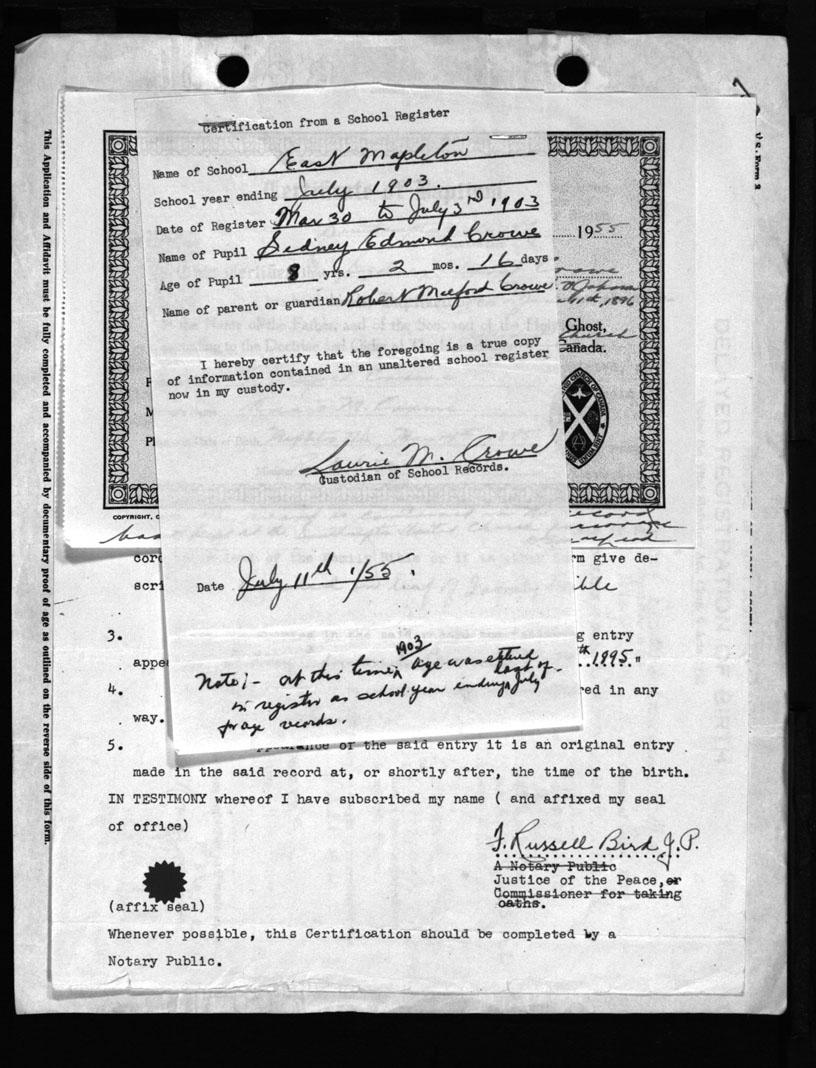 Certification from a School Register
Name of School East Mapleton
School year ending July 1903.
Date of Register Mar 30 to July 3rd 1903
Name of Pupil Sidney Edmond Crowe
Age of Pupil 8 yrs. 2 mos. 16 days
Name of parent or guardian Robert Milford Crowe
I hereby certify that the foregoing is a true copy
of information contained in an unaltered school register
now in my custody.
Laurie M. Crowe
Custodian of School Records.
Date July 11th 1/55.
Note:- At this time, 1903 age was entered
in register as school year ending, last of July
for age records.
1955
1896
Ghost,
Church
Canada.
COPYRIGHT, C
record
rm give de-
scri
3.
g entry
appe
th. 1895."
4.
red in any
way.
5. ppearance of the said entry it is an original entry
made in the said record at, or shortly after, the time of the birth.
IN TESTIMONY whereof I have subscribed my name ( and affixed my seal
of office)
F. Russell Bird J.P.
A Notary Public
Justice of the Peace, or
Commissioner for taking
oaths.
(affix seal)
Whenever possible, this Certification should be completed by a
Notary Public.
This Application and Affidavit must be fully completed and accompanied by documentary proof of age as outlined on the reverse side of this form.
V.S. Form 2
DELAYED REGISTRATION OF BIRTH